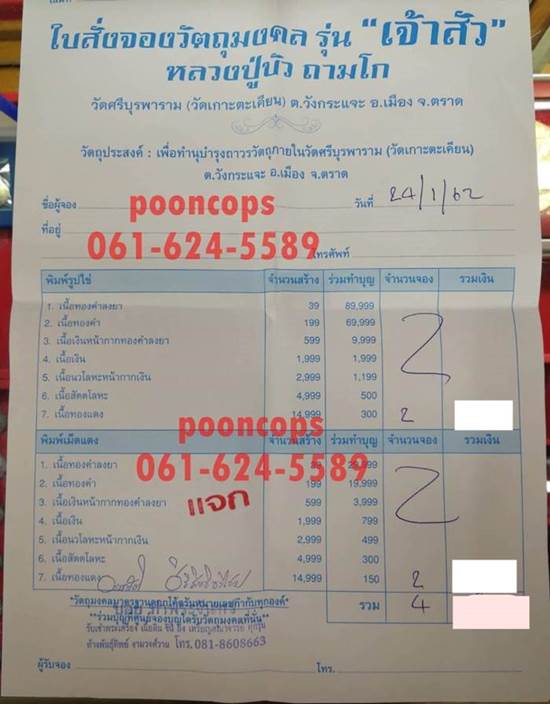 ใบสั่งจองวัตถุมงคล รุ่น "เจ้าสัว"
หลวงปู่บัว ถามโก
วัดศรีบุรพาราม (วัดเกาะตะเคียน) ต.วังกระแจะ อ.เมือง จ.ตราด
วัตถุประสงค์ : เพื่อทำนุบำรุงถาวรวัตถุภายในวัดศรีบุรพาราม (วัดเกาะตะเคียน)
ต.วังกระแจะ อ.เมือง จ.ตราด
ชื่อผู้จอง pooncops วันที่ 24/1/62
ที่อยู่
061-624-5589 โทรศัพท์
พิมพ์รูปไข่ จำนวนสร้าง ร่วมทำบุญ จำนวนจอง รวมเงิน
1. เนื้อทองคำลงยา 39 89,999
2. เนื้อทองคำ 199 69,999
3. เนื้อเงินหน้ากากทองคำลงยา 599 9,999
4. เนื้อเงิน 1,999 1,999
5. เนื้อนวโลหะหน้ากากเงิน 2,999 1,199
6. เนื้อสัตตโลหะ 4,999 500
7. เนื้อทองแดง 14,999 300 2
pooncops
พิมพ์เม็ดแตง จำนวนสร้าง ร่วมทำบุญ จำนวนจอง รวมเงิน
061-624-5589
1. เนื้อทองคำลงยา
2. เนื้อทองคำ 199 19,999
3. เนื้อเงินหน้ากากทองคำลงยา 599 3,999
แจก
4. เนื้อเงิน 1,999 799
5. เนื้อนวโลหะหน้ากากเงิน 2,999 499
6. เนื้อสัตตโลหะ 4,999 300
7. เนื้อทองแดง 14,999 150 2
รวม 4
*วัตถุมงคลมาตรฐานตอกโค้ดรันหมายเลขกำกับทุกองค์*
**ร่วมบุญกับศูนย์จองบุญใดรับวัตถุมงคลที่นั้น**
ห้างพันธุ์ทิพย์ งามวงศ์วาน โทร.081-8608663
ผู้รับจอง โทร.